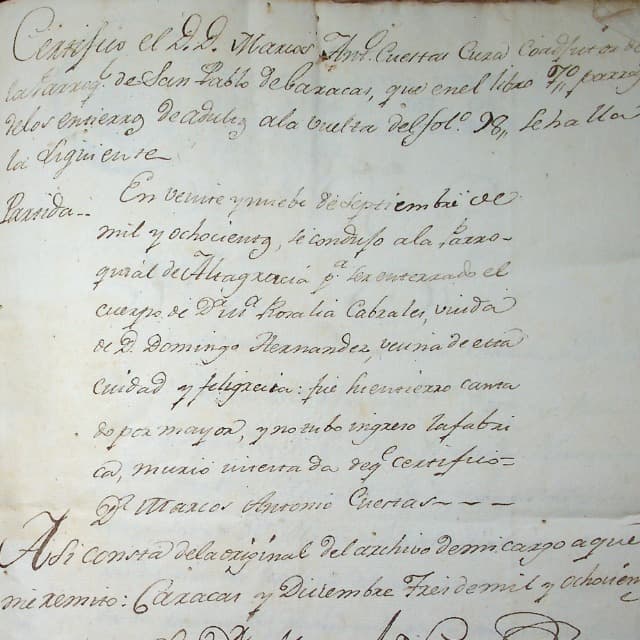 Certifico el D. D. Marcos Antº Cuertas Cura Coadjutor de
la Parroqˡ de San Pablo de Caracas, que en el libro 7º parroqˡ
de los entierrˢ de adultˢ a la vuelta del folº 98,, se halla
la siguiente
Partida..
En veinte y nuebe de Septiembre de
mil y ochocientˢ, se condujo a la Parro-
quial de Altagracia pª ser enterrado el
cuerpo de Dª Rosalia Cabrales, viuda
de D. Domingo Hernandez, vecina de esta
ciudad y feligrecia: fue su entierro canta
do por mayor, y no tubo ingreso la fabri
ca, murio intestada de qᵉ certifico=
Dʳ Marcos Antonio Cuertas - - -
Asi consta de la original del archivo de mi cargo a que
me remito: Caracas y Diciembre tres de mil y ochocien